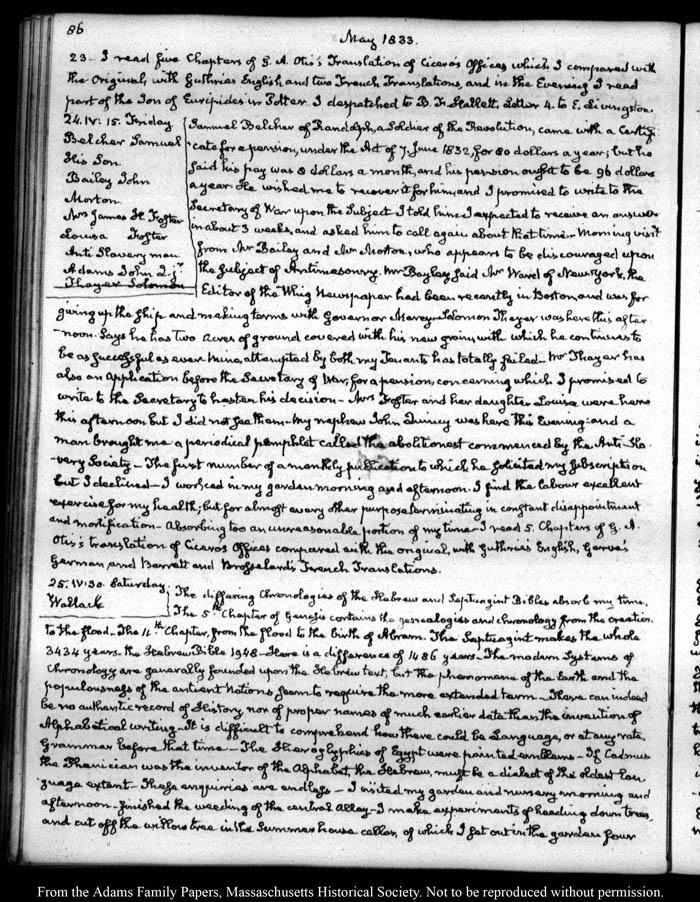 86
May 1833.
23 - I read five Chapters of G. A. Otis's Translation of Cicero's Offices which I compared with
the Original, with Guthries English, and two French Translations, and in the Evening I read
part of the Ion of Euripides in Potter. I despatched to B. F. Hallett, Letter 4. to E. Livingston.
24. IV: 15. Friday
Belcher Samuel
His Son
Bailey John
Morton
Mrs James H. Foster
Louisa Foster
Anti Slavery man
Adams John Q. jr
Thayer Solomon
Samuel Belcher of Randolph, a Soldier of the Revolution, came with a Certifi-
-cate for a pension, under the Act of 7. June 1832, for 80 dollars a year; but he
said his pay was 8 dollars a month, and his pension ought to be 96 dollars
a year. He wished me to recover it for him, and I promised to write to the
Secretary of War upon the Subject. I told him I expected to receive an answer
in about 3 weeks, and asked him to call again about that time - Morning visit
from Mr Bailey and Mr Morton, who appears to be discouraged upon
the subject of Antimasonry. Mr Bayley said Mr Ward of New York, the
Editor of the Whig Newspaper had been recently in Boston, and was for
giving up the ship and making terms with Governor Marcy - Solomon Thayer was here this after
-noon. Says he has two acres of ground covered with his new grain, with which he continues to
be as successful as ever. Mine, attempted by both my Tenants has totally failed - Mr Thayer has
also an application before the Secretary of War, for a pension, concerning which I promised to
write to the Secretary to hasten his decision - Mrs Foster and her daughter Louisa were here
this afternoon but I did not see them - My nephew John Quincy was here this Evening - and a
man brought me a periodical pamphlet called the abolitionist commenced by the Anti-Sla-
-very Society - The first number of a monthly publication to which he solicited my subscription
but I declined - I worked in my garden morning and afternoon. I find the labour excellent
exercise for my health; but for almost every other purpose terminating in constant disappointment
and mortification - Absorbing too an unreasonable portion of my time - I read 5. Chapters of G. A.
Otis's translation of Ciceros Offices compared with the original, with Guthrie's English, Garve's
German, and Barrett and Brosselard's French Translations.
25. IV: 30. Saturday
Wallack
The differing Chronologies of the Hebrew and Septuagint Bibles absorb my time.
The 5th Chapter of Genesis contains the genealogies and chronology from the creation
to the flood - The 11th Chapter, from the flood to the birth of Abram. The Septuagint makes the whole
3434 years - the Hebrew Bible 1948 - Here is a difference of 1486 years - The modern Systems of
Chronology are generally founded upon the Hebrew text, but the phenomena of the Earth and the
populousness of the antient Nations seem to require the more extended term - There can indeed
be no authentic record of History, nor of proper names of much earlier date than the invention of
Alphabetical writing - It is difficult to comprehend how there could be Language, or at any rate
Grammar before that time - The Hieroglyphics of Egypt were painted emblems - If Cadmus
the Phenician was the inventor of the Alphabet, the Hebrew, must be a dialect of the oldest lan
guage extant - These enquiries are endless - I visited my garden and nursery morning and
afternoon - finished the weeding of the central Alley - I make experiments of heading down trees,
and cut off the willow tree in the Summer house cellar, of which I set out in the garden four
From the Adams Family Papers, Massachusetts Historical Society. Not to be reproduced without permission.